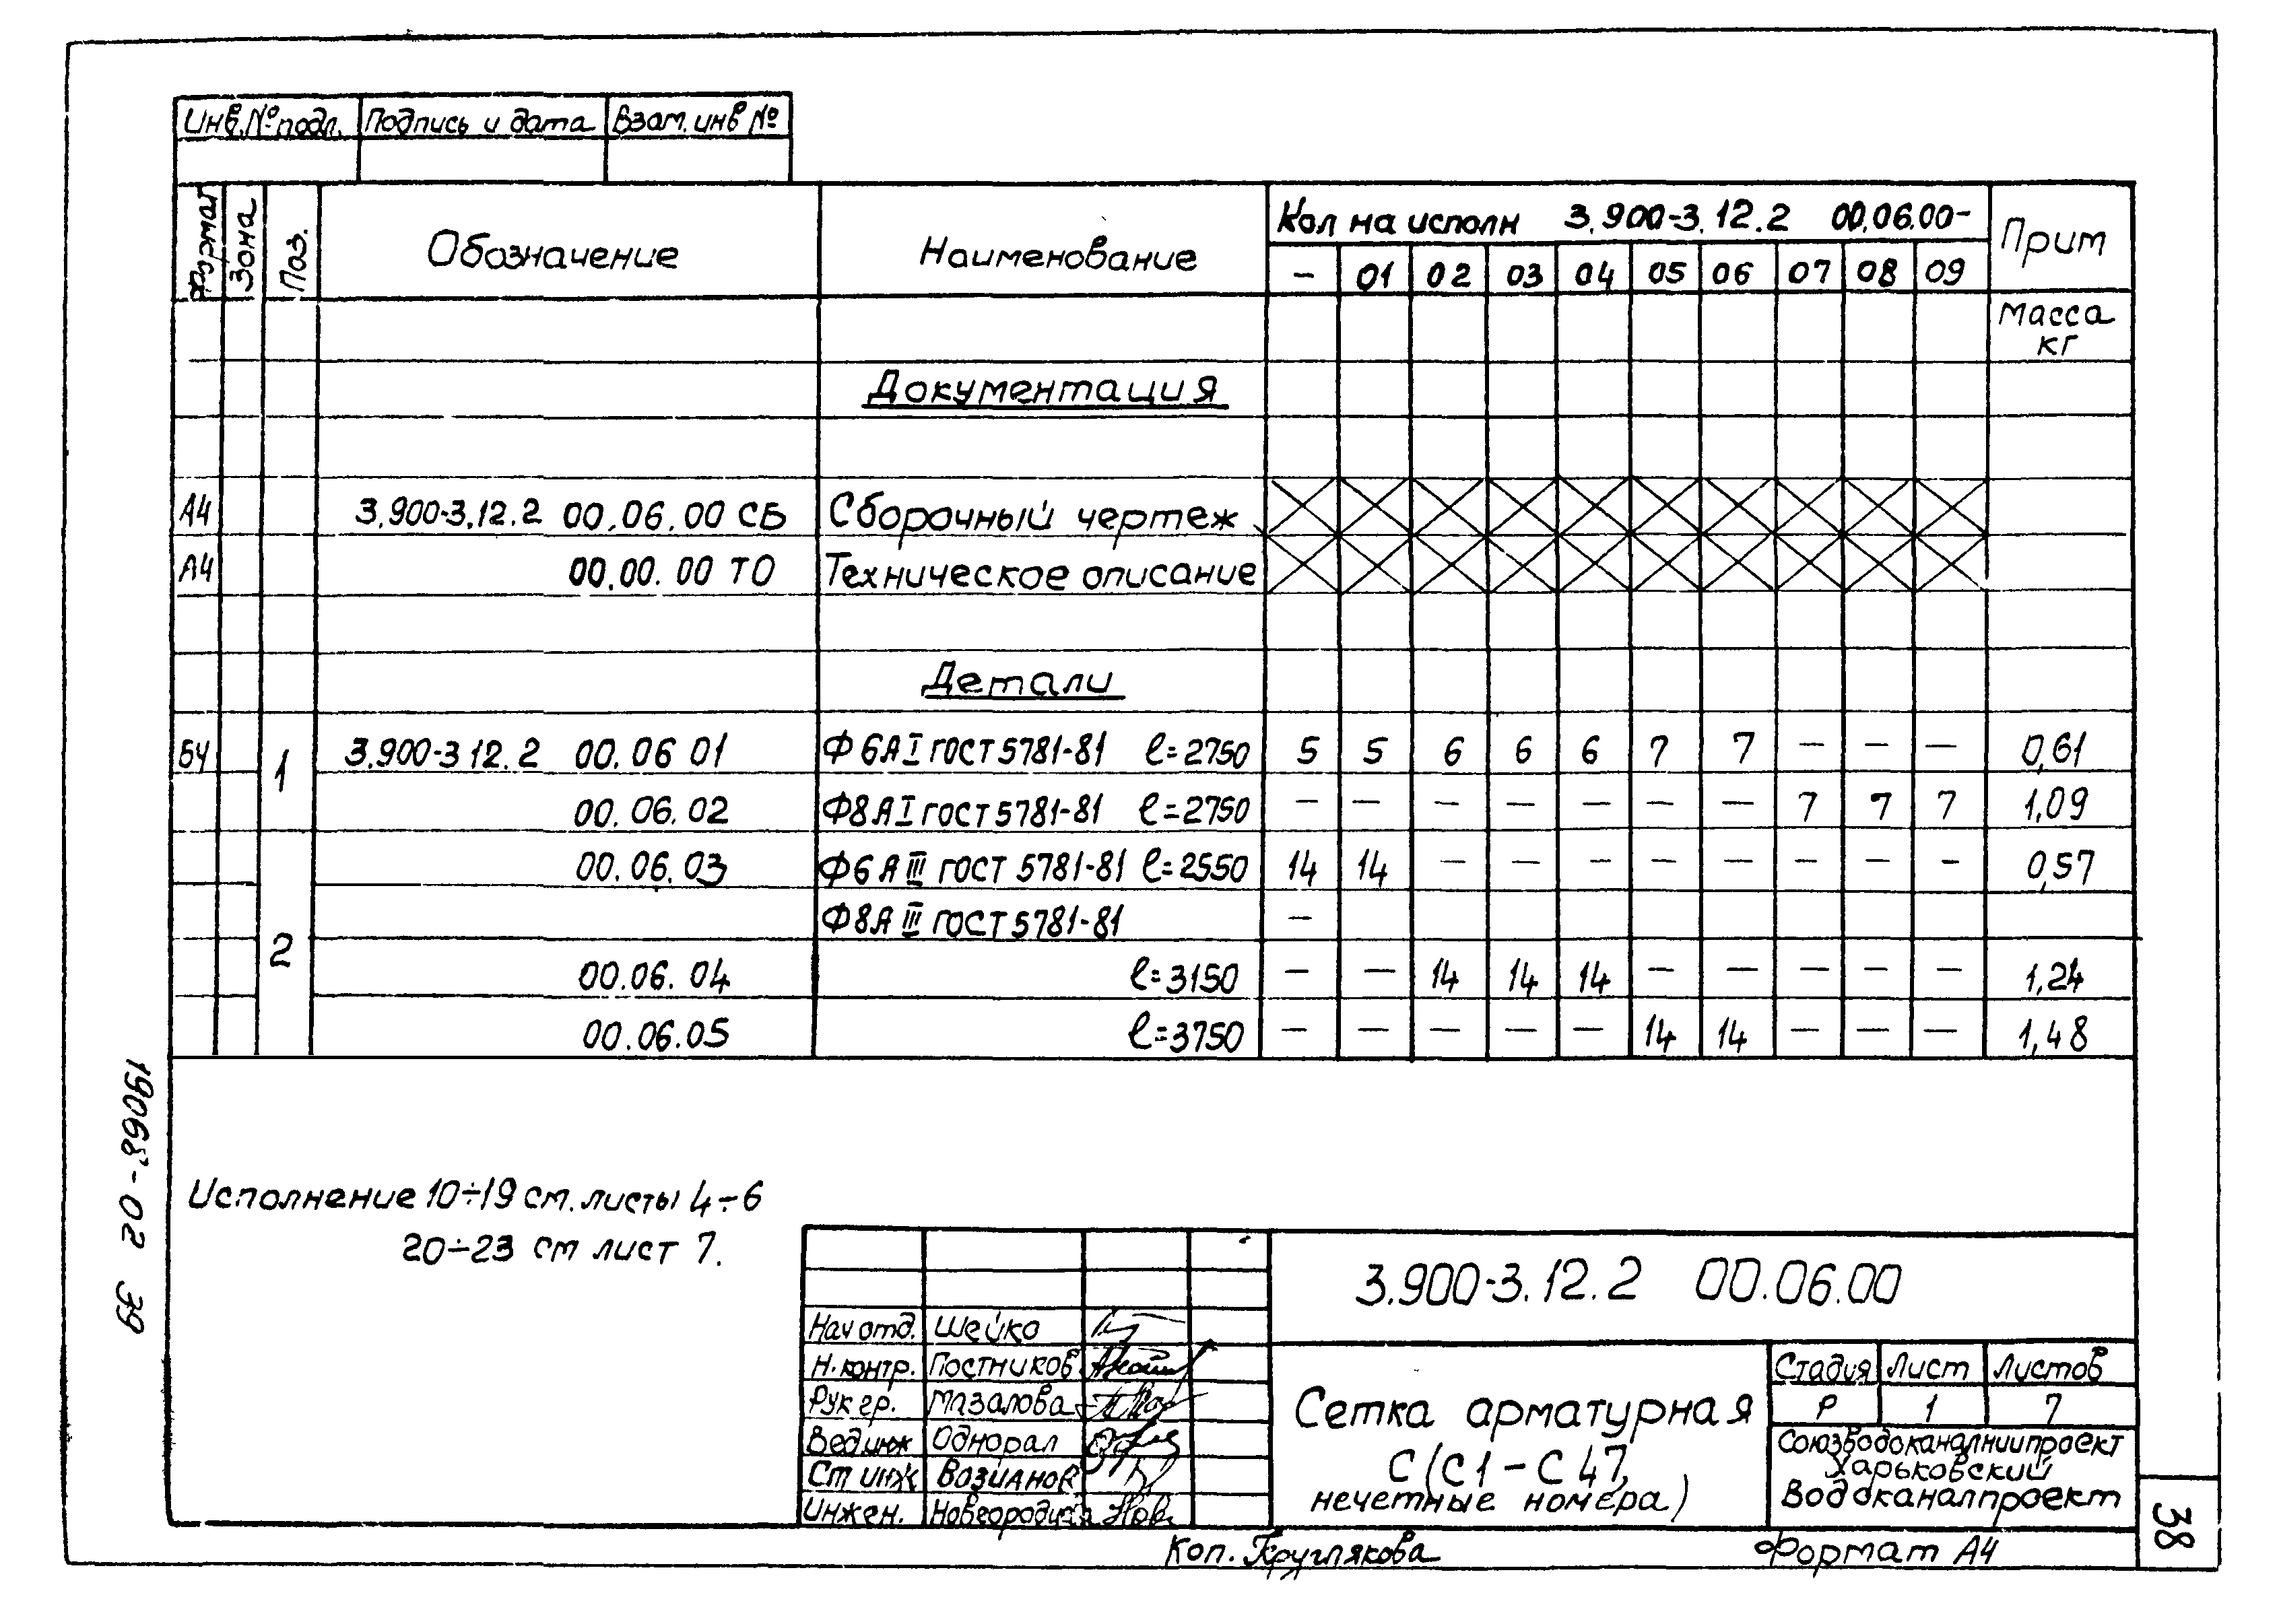 Инв.№ подл. Подпись и дата Взам. инв №
Формат Зона Поз. Обозначение Наименование Кол на исполн 3.900-3.12.2 00.06.00- Прим
– 01 02 03 04 05 06 07 08 09
Масса
кг
Документация
А4 3.900-3.12.2 00.06.00 СБ Сборочный чертеж
А4 00.00.00 ТО Техническое описание
Детали
БЧ 1 3.900-3 12.2 00.06 01 Ф 6АI ГОСТ 5781-81 ℓ=2750 5 5 6 6 6 7 7 – – – 0,61
00.06.02 Ф8АI ГОСТ 5781-81 ℓ=2750 – – – – – – – 7 7 7 1,09
00.06.03 Ф6АIII ГОСТ 5781-81 ℓ=2550 14 14 – – – – – – – – 0,57
2 Ф8АIII ГОСТ 5781-81 –
00.06.04 ℓ=3150 – – 14 14 14 – – – – – 1,24
00.06.05 ℓ=3750 – – – – – 14 14 – – – 1,48
Исполнение 10÷19 см. листы 4÷6
20÷23 см лист 7.
3.900-3.12.2 00.06.00
Нач отд. Шейко
Н.контр. Постников
Рук гр. Мазалова
Вед инж Однорал
Ст инж Возианов
Инжен.
Сетка арматурная
С (С1-С47,
нечетные номера)
Стадия Лист Листов
Р 1 7
Союзводоканалниипроект
Харьковский
Водоканалпроект
Коп. Круглякова Формат А4
19068-02 39
38